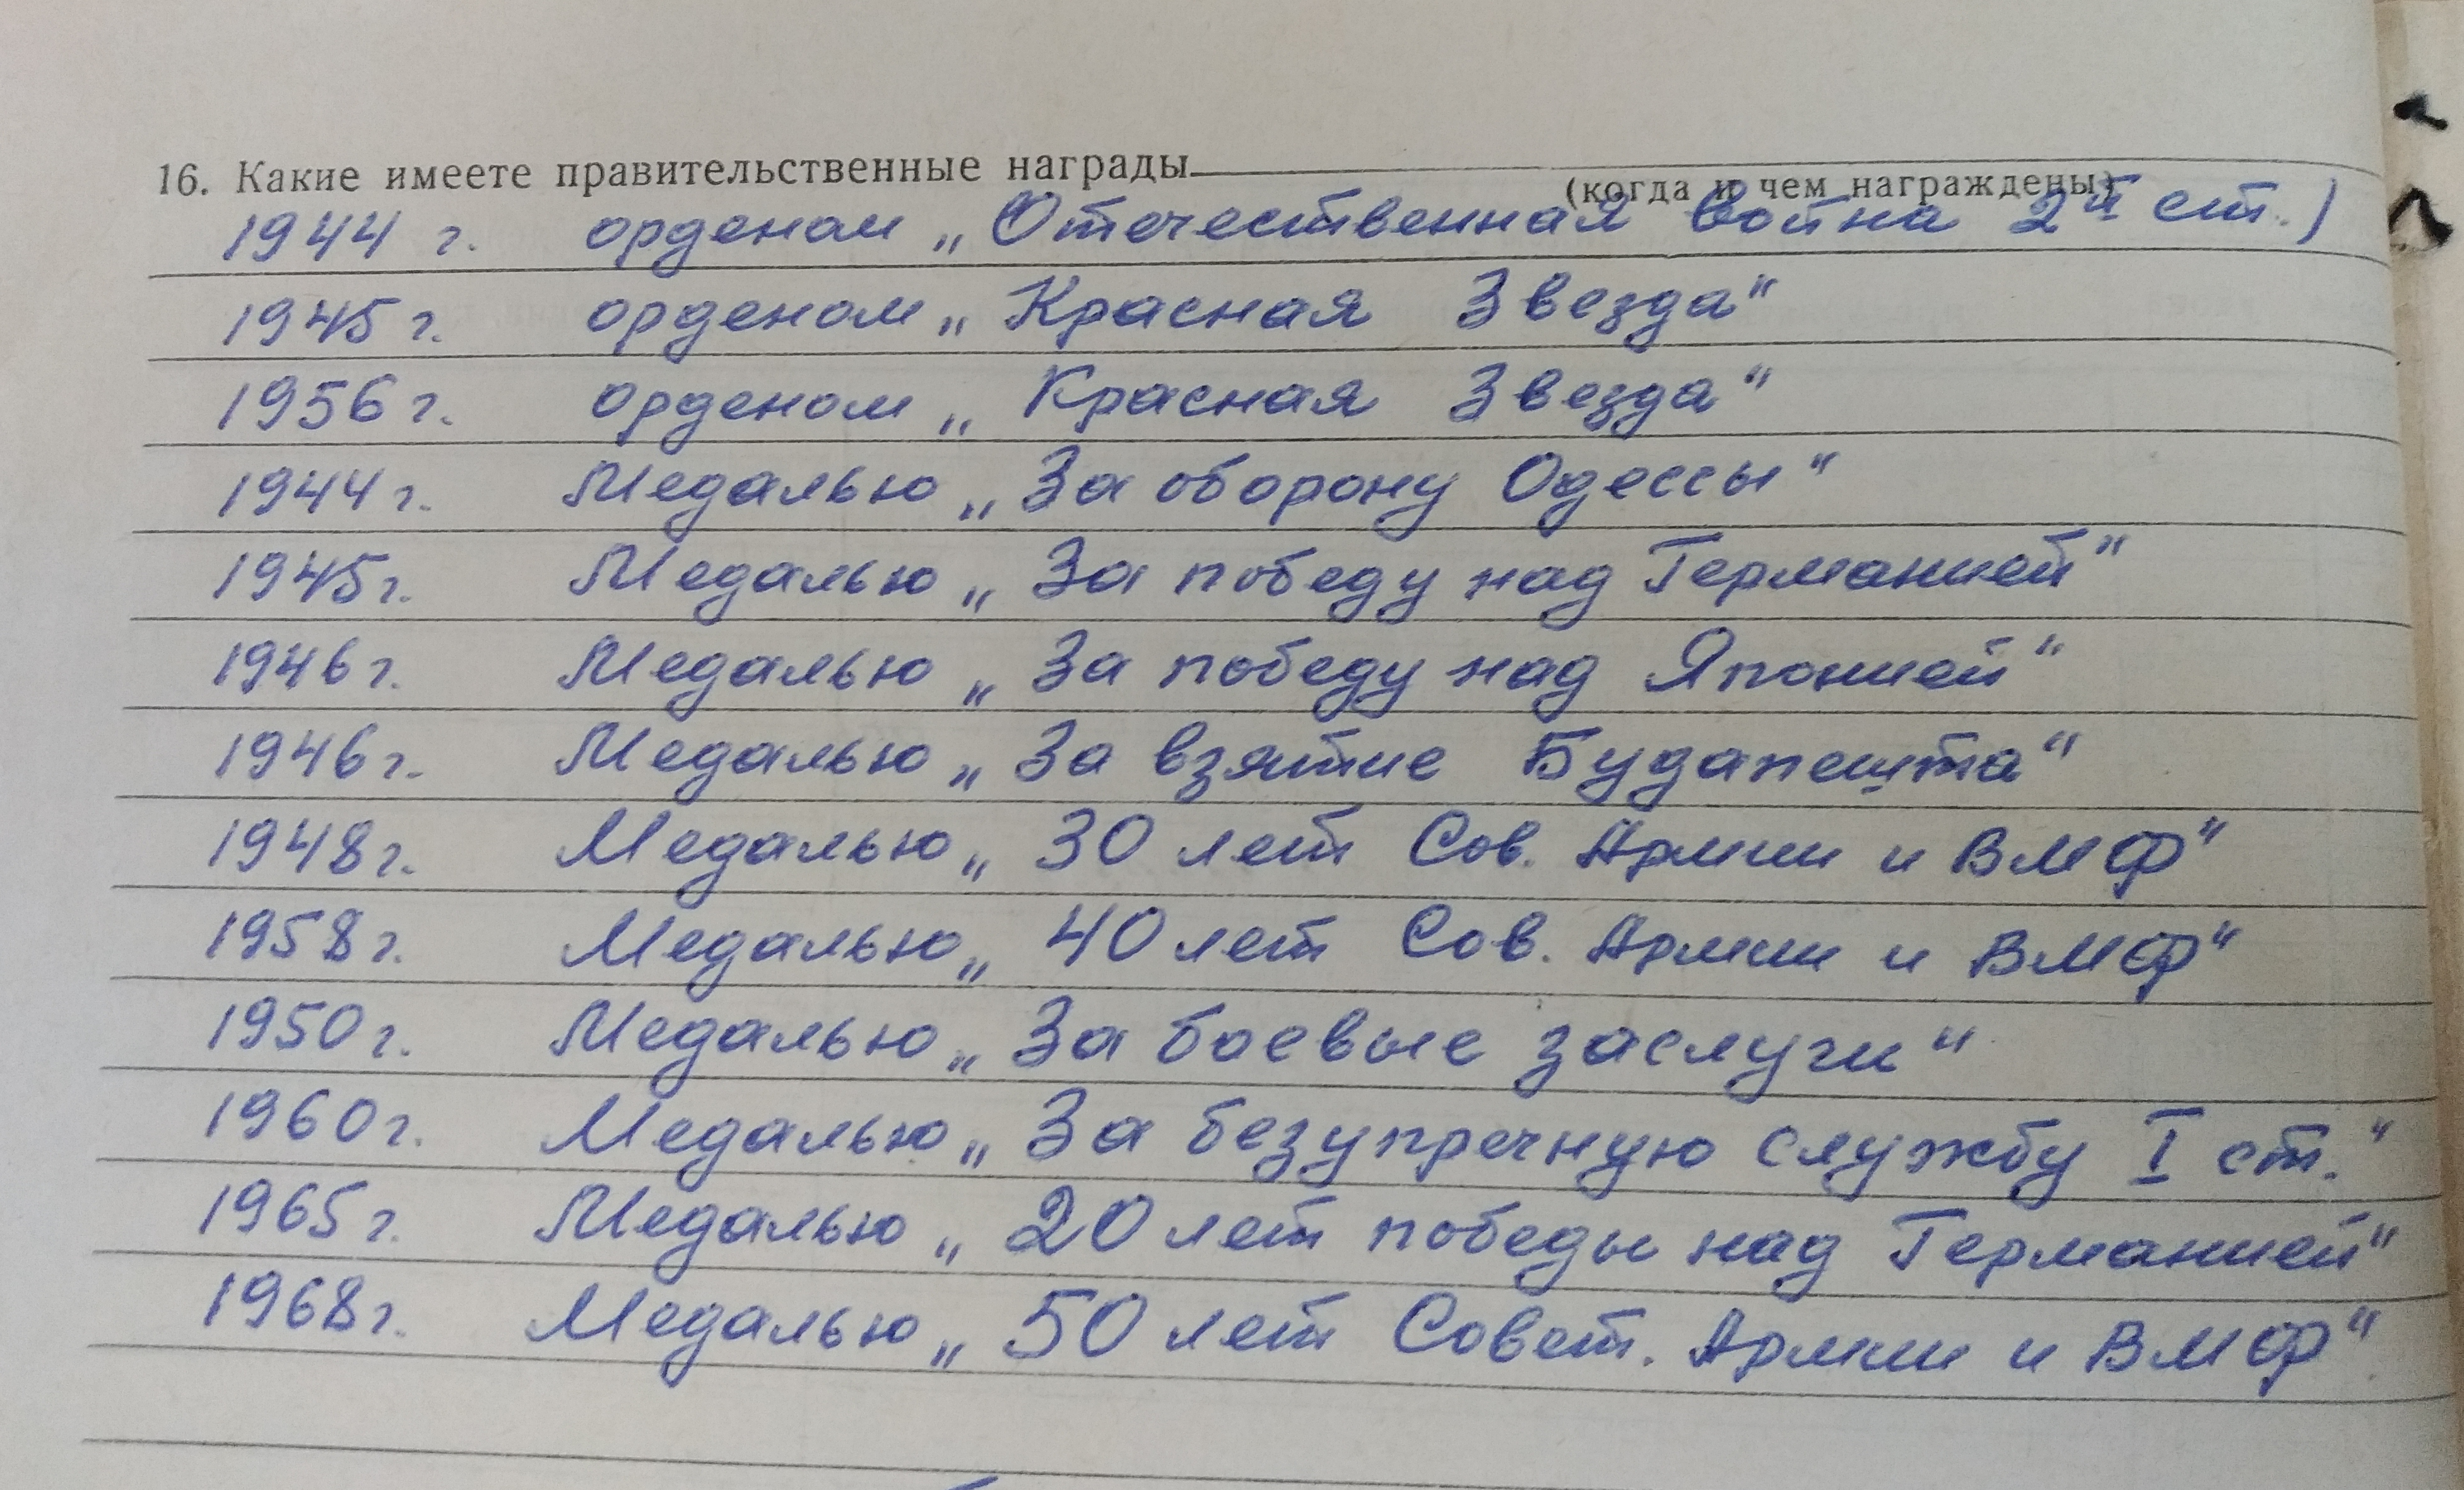 16. Какие имеете правительственные награды
(когда и чем награждены)
1944 г. орденом „Отечественная война 2й ст.)
1945 г. орденом „Красная Звезда“
1956 г. орденом „Красная Звезда“
1944 г. Медалью „За оборону Одессы“
1945 г. Медалью „За победу над Германией“
1946 г. Медалью „За победу над Японией“
1946 г. Медалью „За взятие Будапешта“
1948 г. Медалью „30 лет Сов. Армии и ВМФ“
1958 г. Медалью „40 лет Сов. Армии и ВМФ“
1950 г. Медалью „За боевые заслуги“
1960 г. Медалью „За безупречную службу I ст.“
1965 г. Медалью „20 лет победы над Германией“
1968 г. Медалью „50 лет Совет. Армии и ВМФ“